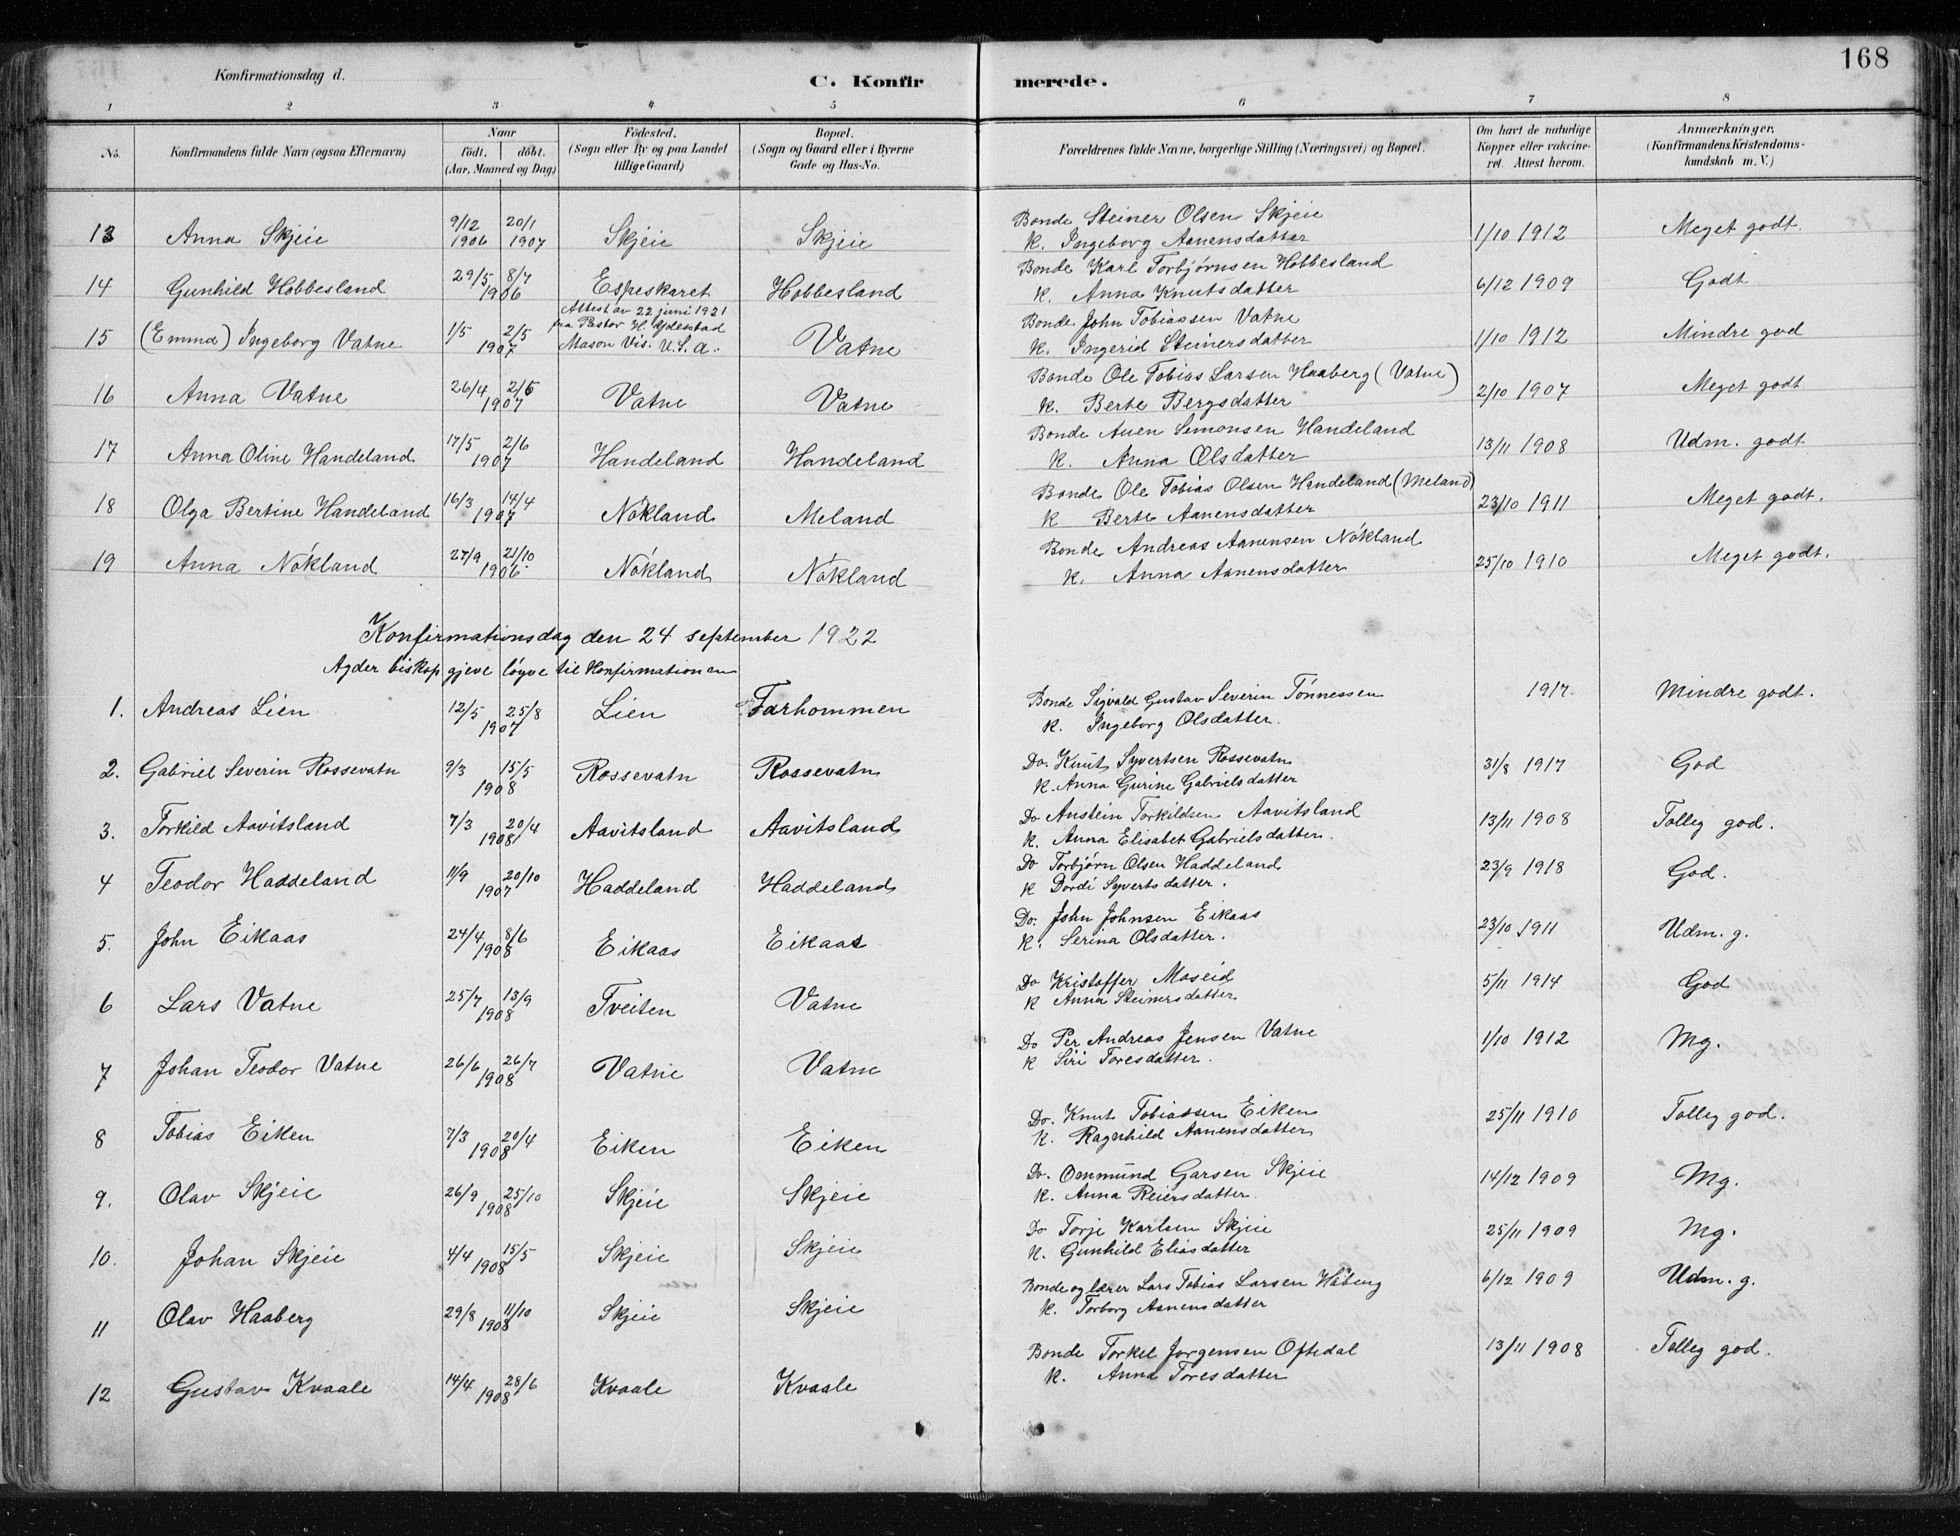 168
Konfirmationsdag d.
C. Konfirmerede.
1 2 3 4 5 6 7 8
No. Konfirmandens fulde Navn (ogsaa Efternavn) Naar födt. döbt. (Aar, Maaned og Dag) Födested. (Sogn eller By og paa Landet tillige Gaard) Bopæl. (Sogn og Gaard eller i Byerne Gade og Hus-No. Forældrenes fulde Navne, borgerlige Stilling (Næringsvei) og Bopæl. Om havt de naturlige Kopper eller vakcineret. Attest herom. Anmærkninger. (Konfirmandens Kristendomskundskab m. V.)
13 Anna Skjeie 9/12 1906 20/1 1907 Skjeie Skjeie Bonde Steiner Olsen Skjeie 1/10 1912 Meget godt.
K. Ingeborg Aanensdatter
14 Gunhild Hobbesland 29/5 8/7 1906 Espeskaret Hobbesland Bonde Karl Torbjørnsen Hobbesland 6/12 1909 Godt
K. Anna Knutsdatter
Attest av 22 juni 1921
fra Pastor H.
Mason Vis. U.S.a.
15 (Emma) Ingeborg Vatne 1/5 2/5 1907 Vatne Bonde John Tobiassen Vatne 1/10 1912 Mindre god
K. Ingerid Steinersdatter
16 Anna Vatne 26/4 2/6 1907 Vatne Vatne Bonde Ole Tobias Larsen Haaberg (Vatne) 2/10 1907 Meget godt
K. Berte Bergsdatter
17 Anna Oline Handeland 17/5 2/6 1907 Handeland Handeland Bonde Auen Simonsen Handeland 13/11 1908 Udm. godt
K. Anna Olsdatter
18 Olga Bertine Handeland 16/3 14/4 1907 Nökland Meland Bonde Ole Tobias Olsen Handeland (Meland) 23/10 1911 Meget godt.
K Berte Aanensdatter
19 Anna Nökland 27/9 21/10 1906. Nökland Nökland Bonde Andreas Aanensen Nökland 25/10 1910 Meget godt.
K. Anna Aanensdatter
Konfirmationsdag den 24 september 1922
Agder biskop gjeve løyve til Konfirmationen
1. Andreas Lien 12/5 25/8 1907 Lien Farhommen Bonde Sigvald Gustav Severin Tønnessen 1917 Mindre godt.
K. Ingeborg Olsdatter.
2. Gabriel Severin Rossevatn 9/3 15/5 1908 Rossevatn Rossevatn Do. Knut Syvertsen Rossevatn 31/8 1917 God
K. Anna Gurine Gabrielsdatter
3. Torkild Aavitsland 7/3 20/4 1908 Aavitsland Aavitsland Do Anstein Torkildsen Aavitsland 13/11 1908 Tolleg god.
K. Anna Elisabet Gabrielsdatter.
4 Teodor Haddeland 11/9 20/10 1907 Haddeland Haddeland Do Torbjørn Olsen Haddeland 23/9 1918 God.
K Dordi Syvertsdatter.
5. John Eikaas 24/4 8/6 1908 Eikaas Eikaas Do. John Johnsen Eikaas 23/10 1911 Udm. g.
K. Serina Olsdatter.
6 Lars Vatne 25/7 13/9 1908 Tveiten Vatne Do Kristoffer Moseid 5/11 1914 God
K Anna Steinersdatter
7 Johan Teodor Vatne 26/6 26/7 1908 Vatne Vatne Do Per Andreas Jensen Vatne 1/10 1912 Mg.
K Siri Toresdatter.
8 Tobias Eiken 7/3 20/4 1908 Eiken Eiken Do. Knut Tobiassen Eiken 25/11 1910 Tolleg god.
K. Ragnhild Aanensdatter
9. Olav Skjeie 26/9 25/10 1908 Skjeie Skjeie Do. Ommund Garsen Skjeie 14/12 1909 Mg.
K. Anna Reiersdatter.
10. Johan Skjeie 4/4 15/5 1908 Skjeie Skjeie Do Torje Karlsen Skjeie 25/11 1909 Mg.
K. Gunhild Eliasdatter
11 Olav Haaberg 29/8 11/10 1908 Skjeie Skjeie Bonde og lærer Lars Tobias Larsen Håberg 6/12 1909 Udm. g.
K. Torborg Aanensdatter
12 Gustav Kvaale 14/4 28/6 1908 Kvaale Kvaale Bonde Torkel Jorgensen Oftedal 13/11 1908 Tolleg god.
K. Anna Toresdatter